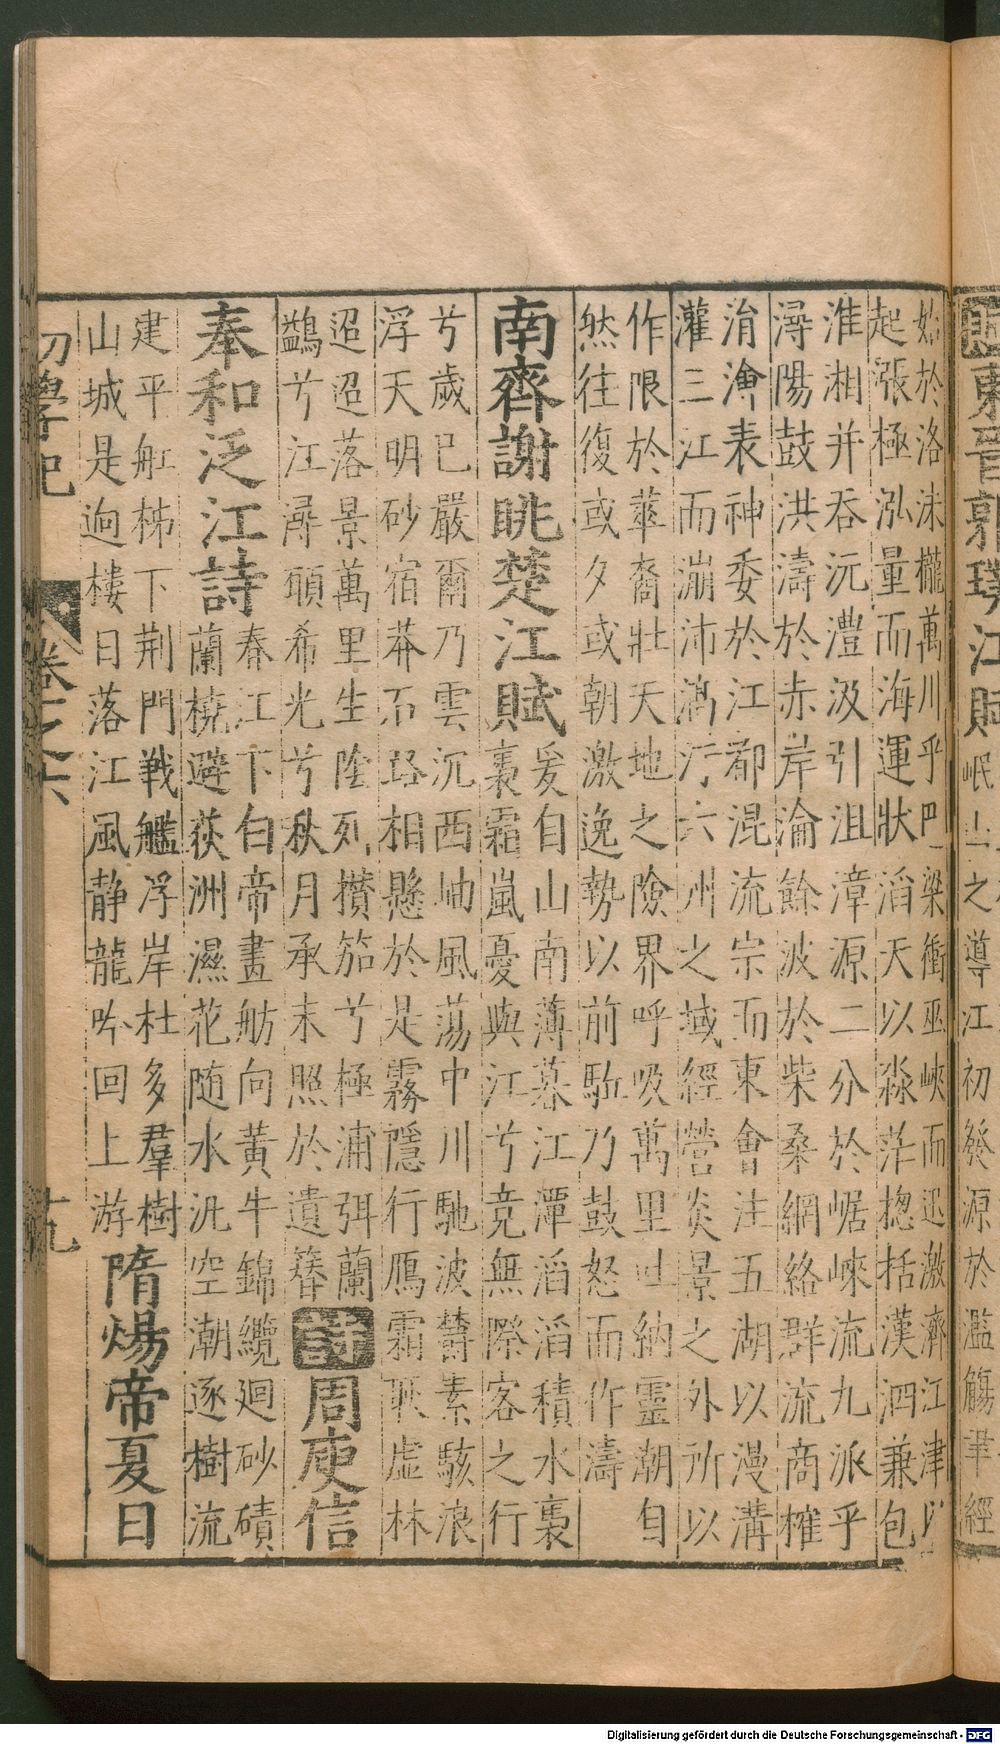 賦東晉郭璞江賦岷山之導江初發源於濫觴聿經
始於洛沬攏萬川乎巴梁衝巫峽而迅激濟江津以
起漲極泓量而海運狀滔天以淼茫揔括漢泗兼包
淮湘并吞沅澧汲引沮漳源二分於崌崍流九派乎
潯陽鼓洪濤於赤岸淪餘波於柴桑網絡群流商搉
涓澮表神委於江都混流宗而東會注五湖以漫溝
灌三江而漰沛滈汗六州之域經營炎景之外所以
作限於華裔壯天地之險界呼吸萬里吐納靈潮自
然往復或夕或朝激逸勢以前駈乃鼓怒而作濤
南齊謝眺楚江賦
爰自山南薄暮江潭滔滔積水裊
裊霜嵐憂與江兮竟無際客之行
兮歲已嚴爾乃雲沉西岫風蕩中川馳波鬱素駭浪
浮天明砂宿莽石路相懸於是霧隱行鴈霜眇虛林
迢迢落景萬里生陰列攢笳兮極浦弭蘭
鷁兮江潯頋希光兮秋月承末照於遺簪
詩周庾信
奉和泛江詩
春江下白帝畫舫向黃牛錦纜廻砂磧
蘭橈避荻洲濕花随水汎空潮逐樹流
建平舡柹下荊門戰艦浮岸杜多羣樹
山城是逈樓日落江風静龍吟回上游
隋煬帝夏日
初學記 卷之六 十九
Digitalisierung gefördert durch die Deutsche Forschungsgemeinschaft - DFG